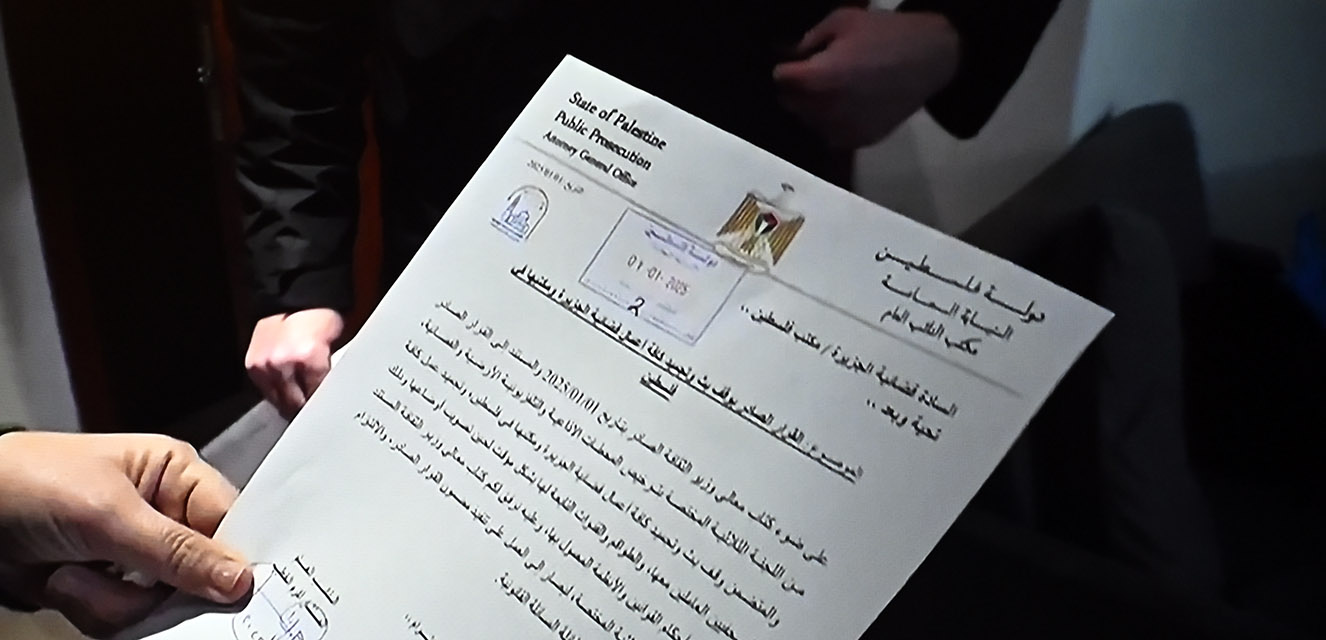 State of Palestine
Public Prosecution
Attorney General Office
دولة فلسطين
النيابة العامة
مكتب النائب العام
التاريخ 2025/01/01
دولة فلسطين
01-01-2025
2
السادة فضائية الجزيرة / مكتب فلسطين ..
تحية وبعد ..
الموضوع: القرار الصادر بوقف بث وتجميد كافة اعمال فضائية الجزيرة ومكتبها في
فلسطين
على ضوء كتاب معالي وزير الثقافة الصادر بتاريخ 2025/01/01 والمستند الى القرار الصادر
من اللجنة الثلاثية المختصة بترخيص المحطات الاذاعية والتلفزيونية الأرضية والفضائية،
والمتضمن وقف بث وتجميد كافة اعمال فضائية الجزيرة ومكتبها في فلسطين، وتجميد عمل كافة
العاملين معها، والطواقم والقنوات التابعة لها بشكل مؤقت لحين تصويب أوضاعها وذلك
القوانين والأنظمة المعمول بها، وعليه نرفق لكم كتاب معالي وزير الثقافة المستند
المختصة، ليصار الى العمل على تنفيذ مضمون القرار الصادر، والالتزام
المسائلة القانونية.